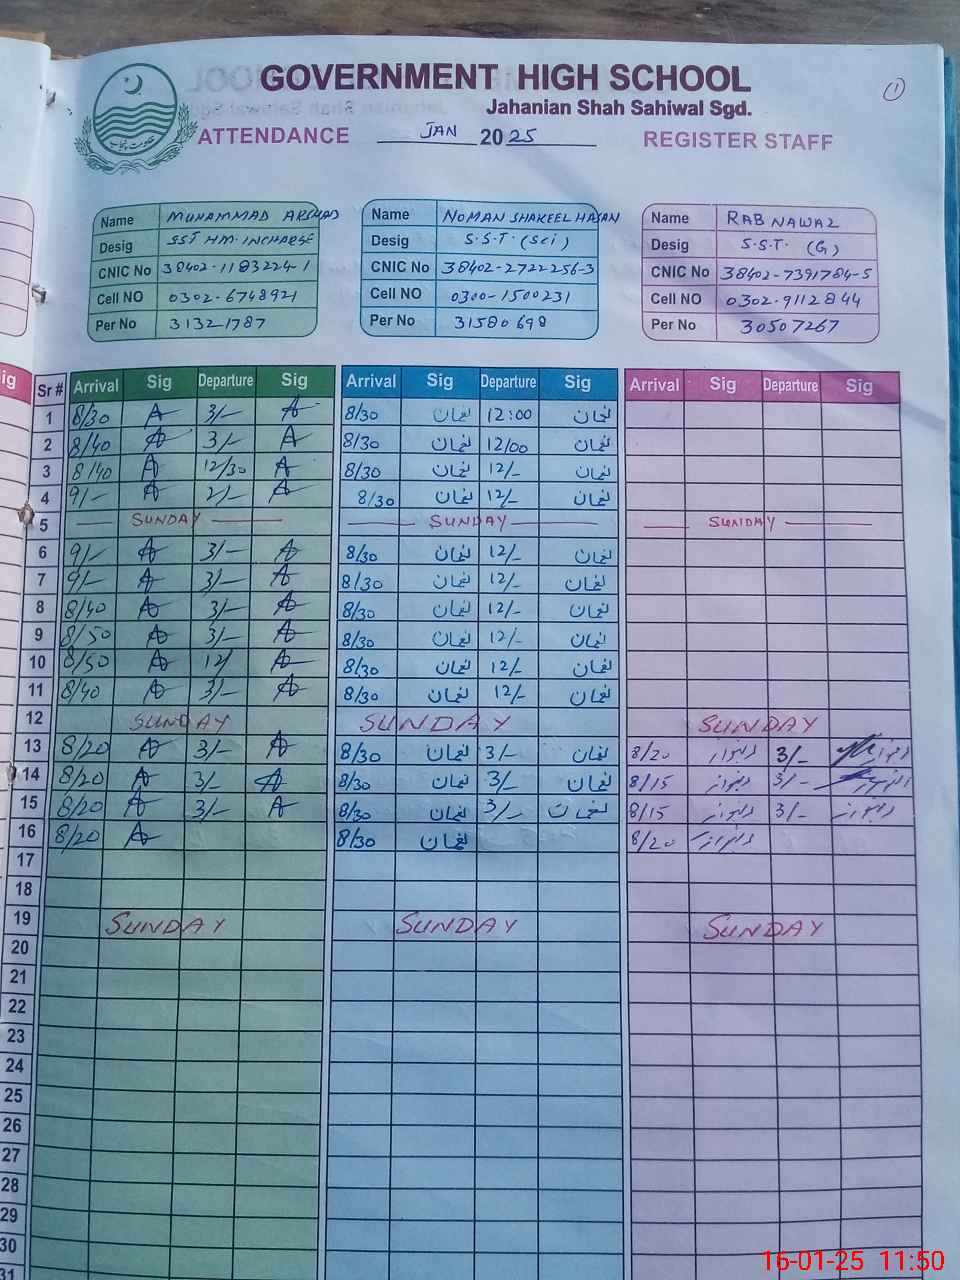 GOVERNMENT HIGH SCHOOL
Jahanian Shah Sahiwal Sgd.
1
ATTENDANCE JAN 2025 REGISTER STAFF
Name MUHAMMAD ARSHAD Name NOMAN SHAKEEL HASAN Name RAB NAWAZ
Desig SST HM. INCHARGE Desig S.S.T. (Sci) Desig S.S.T. (G)
CNIC No 38402-1183224-1 CNIC No 38402-2722256-3 CNIC No 38402-7391784-5
Cell NO 0302-6748921 Cell NO 0300-1500231 Cell NO 0302-9112844
Per No 31321787 Per No 31580698 Per No 30507267
ig Sr # Arrival Sig Departure Sig Arrival Sig Departure Sig Arrival Sig Departure Sig
1 8/30 A 3/- A 8/30 نعمان 12:00 نعمان
2 8/40 A 3/- A 8/30 نعمان 12/00 نعمان
3 8/40 A 12/30 A 8/30 نعمان 12/- نعمان
4 9/- A 2/- A 8/30 نعمان 12/- نعمان
5 SUNDAY SUNDAY SUNDAY
6 9/- A 3/- A 8/30 نعمان 12/- نعمان
7 9/- A 3/- A 8/30 نعمان 12/- نعمان
8 8/40 A 3/- A 8/30 نعمان 12/- نعمان
9 8/50 A 3/- A 8/30 نعمان 12/- نعمان
10 8/50 A 12/ A 8/30 نعمان 12/- نعمان
11 8/40 A 3/- A 8/30 نعمان 12/- نعمان
12 SUNDAY SUNDAY SUNDAY
13 8/20 A 3/- A 8/30 نعمان 3/- نعمان 8/20 3/-
14 8/20 A 3/- A 8/30 نعمان 3/- نعمان 8/15 3/-
15 8/20 A 3/- A 8/30 نعمان 3/- نعمان 8/15 3/-
16 8/20 A 8/30 نعمان 8/20
17
18
19 SUNDAY SUNDAY SUNDAY
20
21
22
23
24
25
26
27
28
29
30
31
16-01-25 11:50